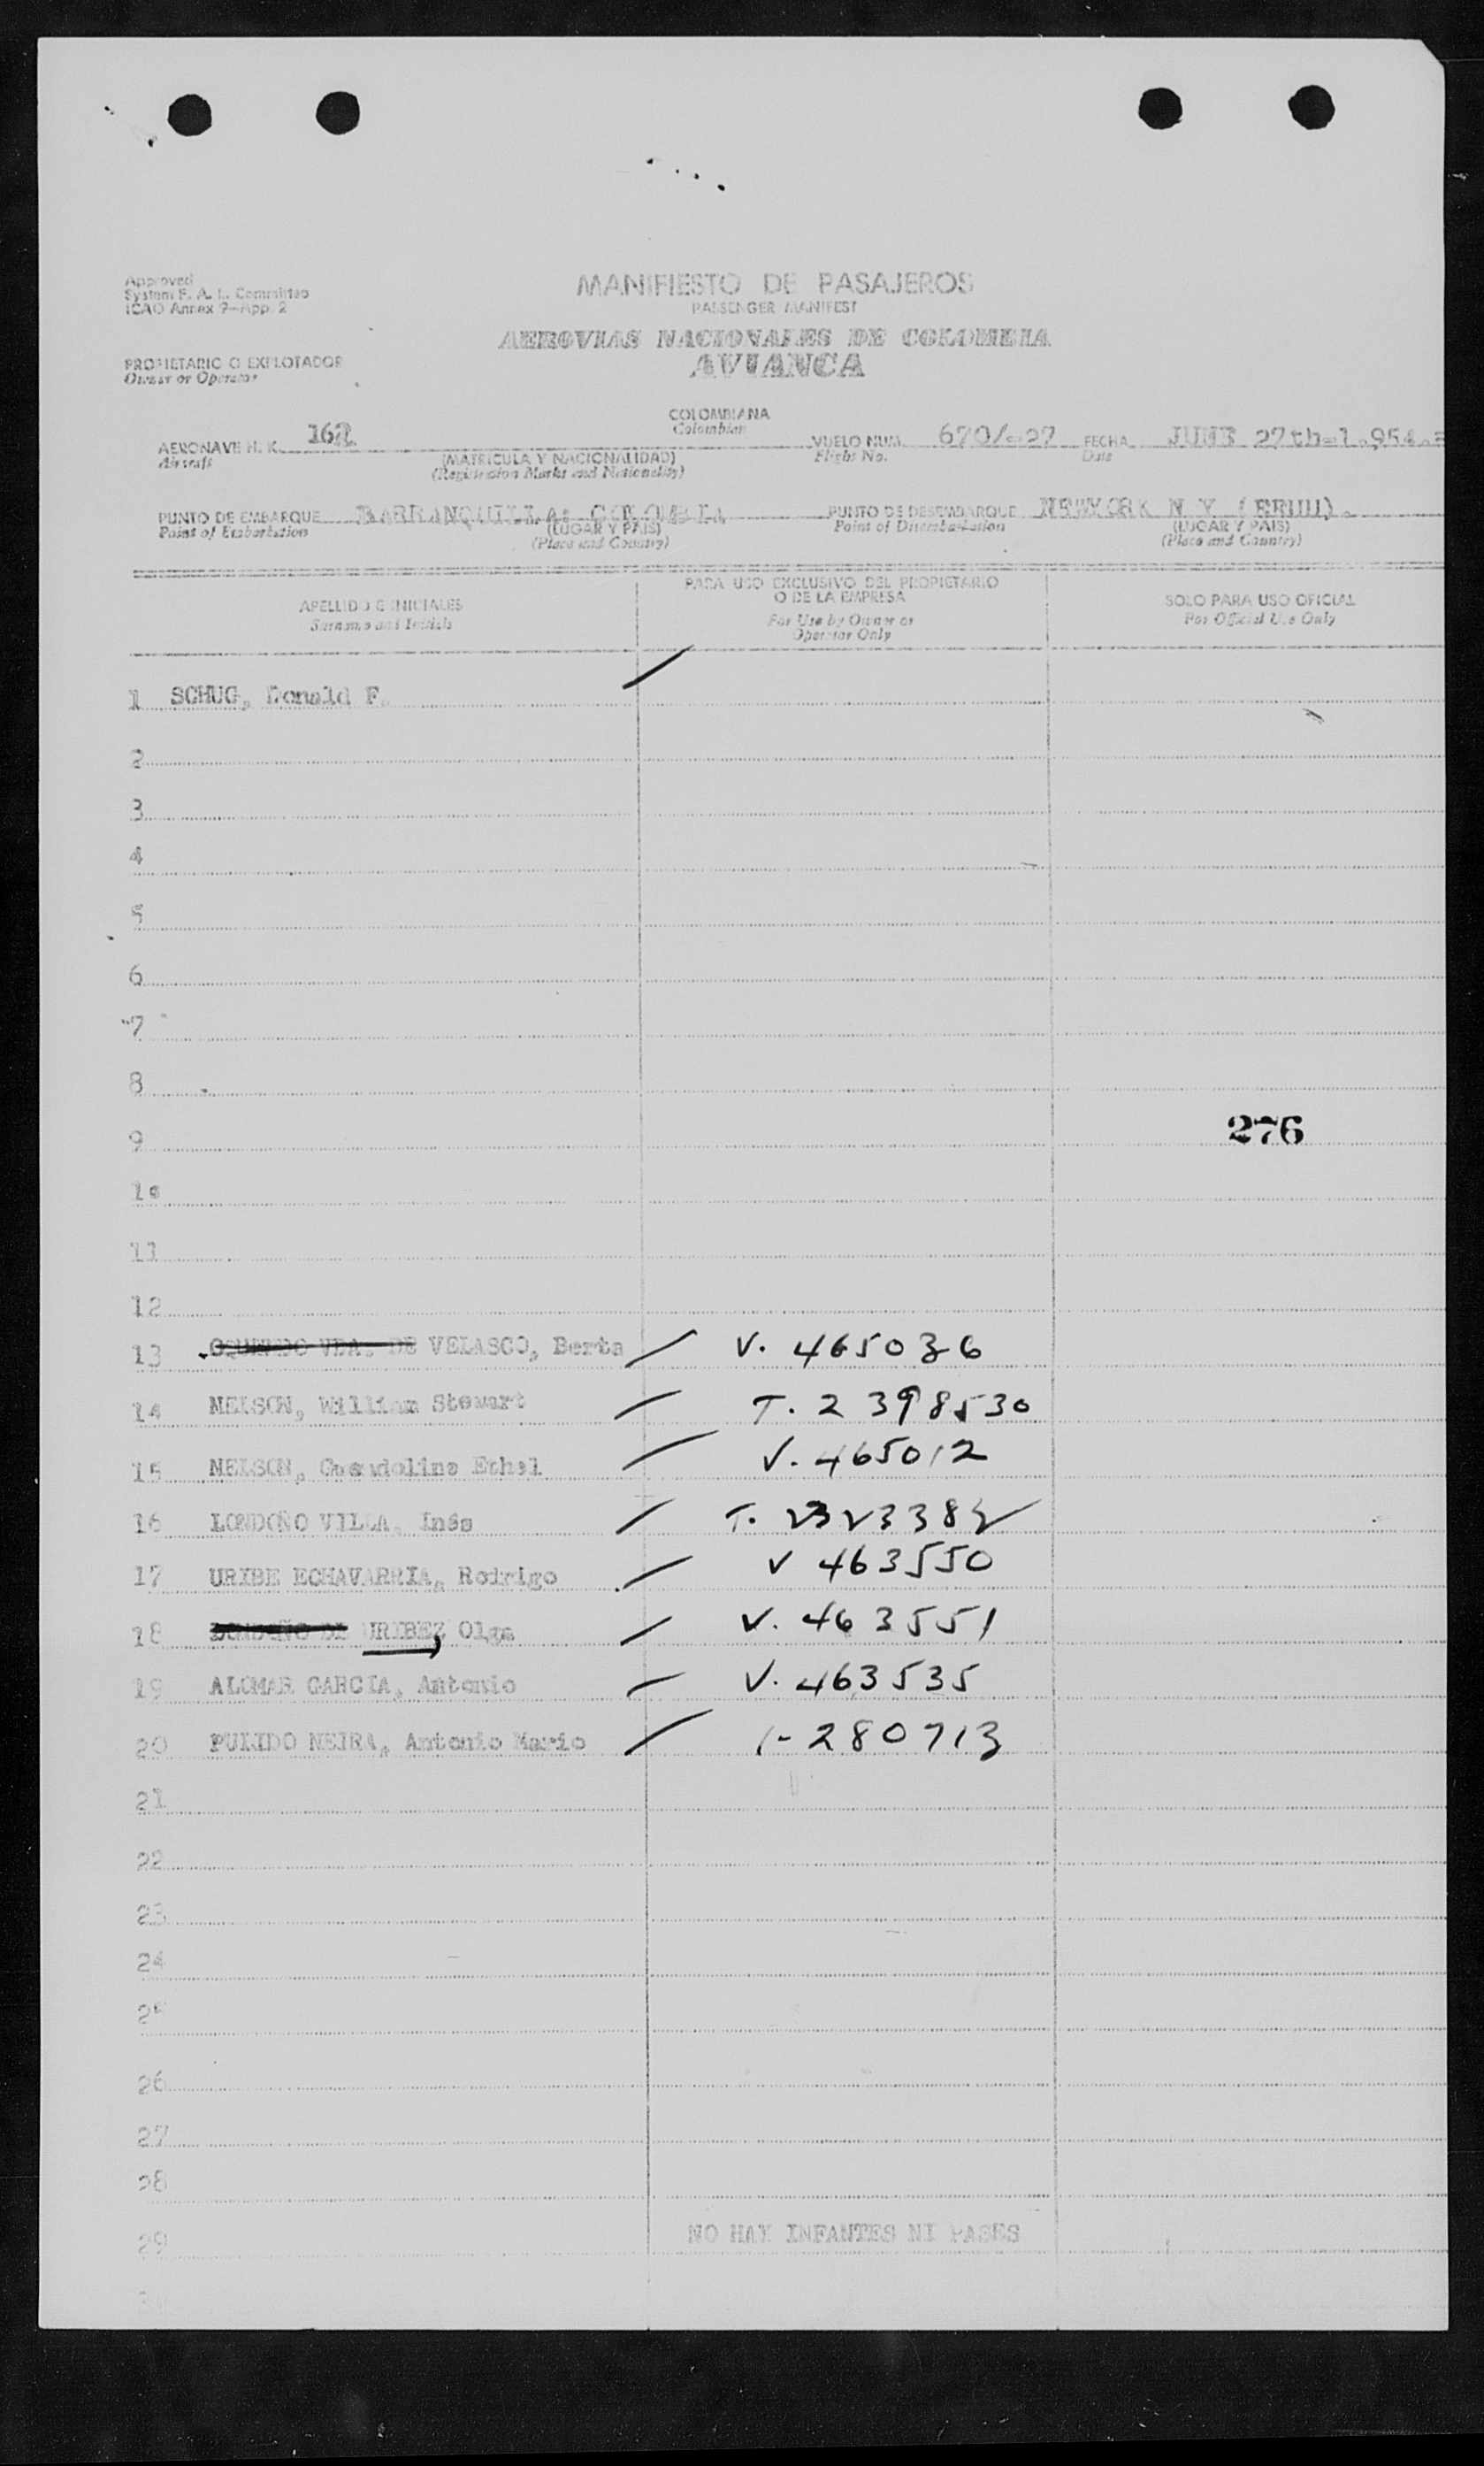 Approved
System F. A. L. Committee
ICAO Annex 9-App. 2
MANIFIESTO DE PASAJEROS
PASSENGER MANIFEST
AEROVIAS NACIONALES DE COLOMBIA
AVIANCA
PROPIETARIO O EXPLOTADOR
Owner or Operator
COLOMBIANA
Colombian
AERONAVE H. K. 162 VUELO NUM. 670/=27 FECHA JUNE 27th=1.954.=
Aircraft (MATRICULA Y NACIONALIDAD) Flight No. Date
(Registration Marks and Nationality)
PUNTO DE EMBARQUE BARRANQUILLA: COLOMBIA PUNTO DE DESEMBARQUE NEWYORK N Y (EEUU).
Point of Embarkation (LUGAR Y PAIS) Point of Disembarkation (LUGAR Y PAIS)
(Place and Country) (Place and Country)
APELLIDO E INICIALES
Surname and Initials
PARA USO EXCLUSIVO DEL PROPIETARIO
O DE LA EMPRESA
For Use by Owner or
Operator Only
SOLO PARA USO OFICIAL
For Official Use Only
1 SCHUG, Donald F.
2
3
4
5
6
7
8
9 276
10
11
12
13 VDA. DE VELASCO, Berta / V. 465036
14 NELSON, William Stewart / T. 2398530
15 NELSON, Guendoline Ethel / V. 465012
16 LONDOÑO VILLA, Inés / T.
17 URIBE ECHAVARRIA, Rodrigo / V 463550
18 LONDOÑO DE URIBE, Olga / V. 463551
19 ALOMAR GARCIA, Antonio / V. 463535
20 PULIDO NEIRA, Antonio Mario / 1-280713
21
22
23
24
25
26
27
28
29 NO HAY INFANTES NI PASES